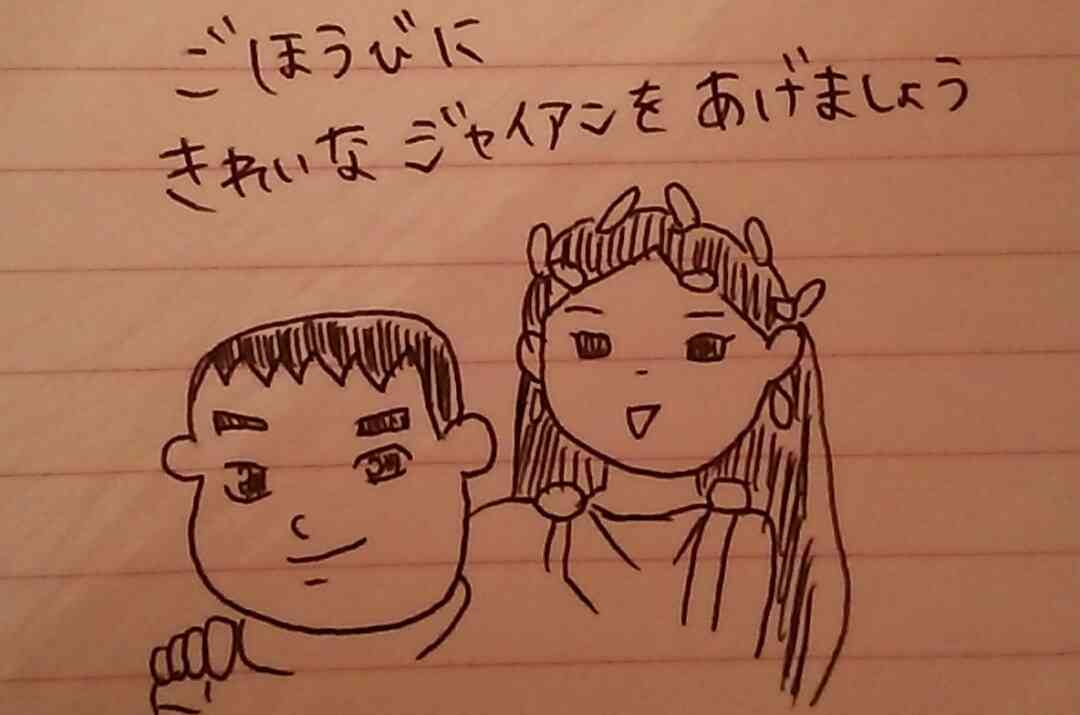 ごほうびに
きれいな ジャイアンを あげましょう